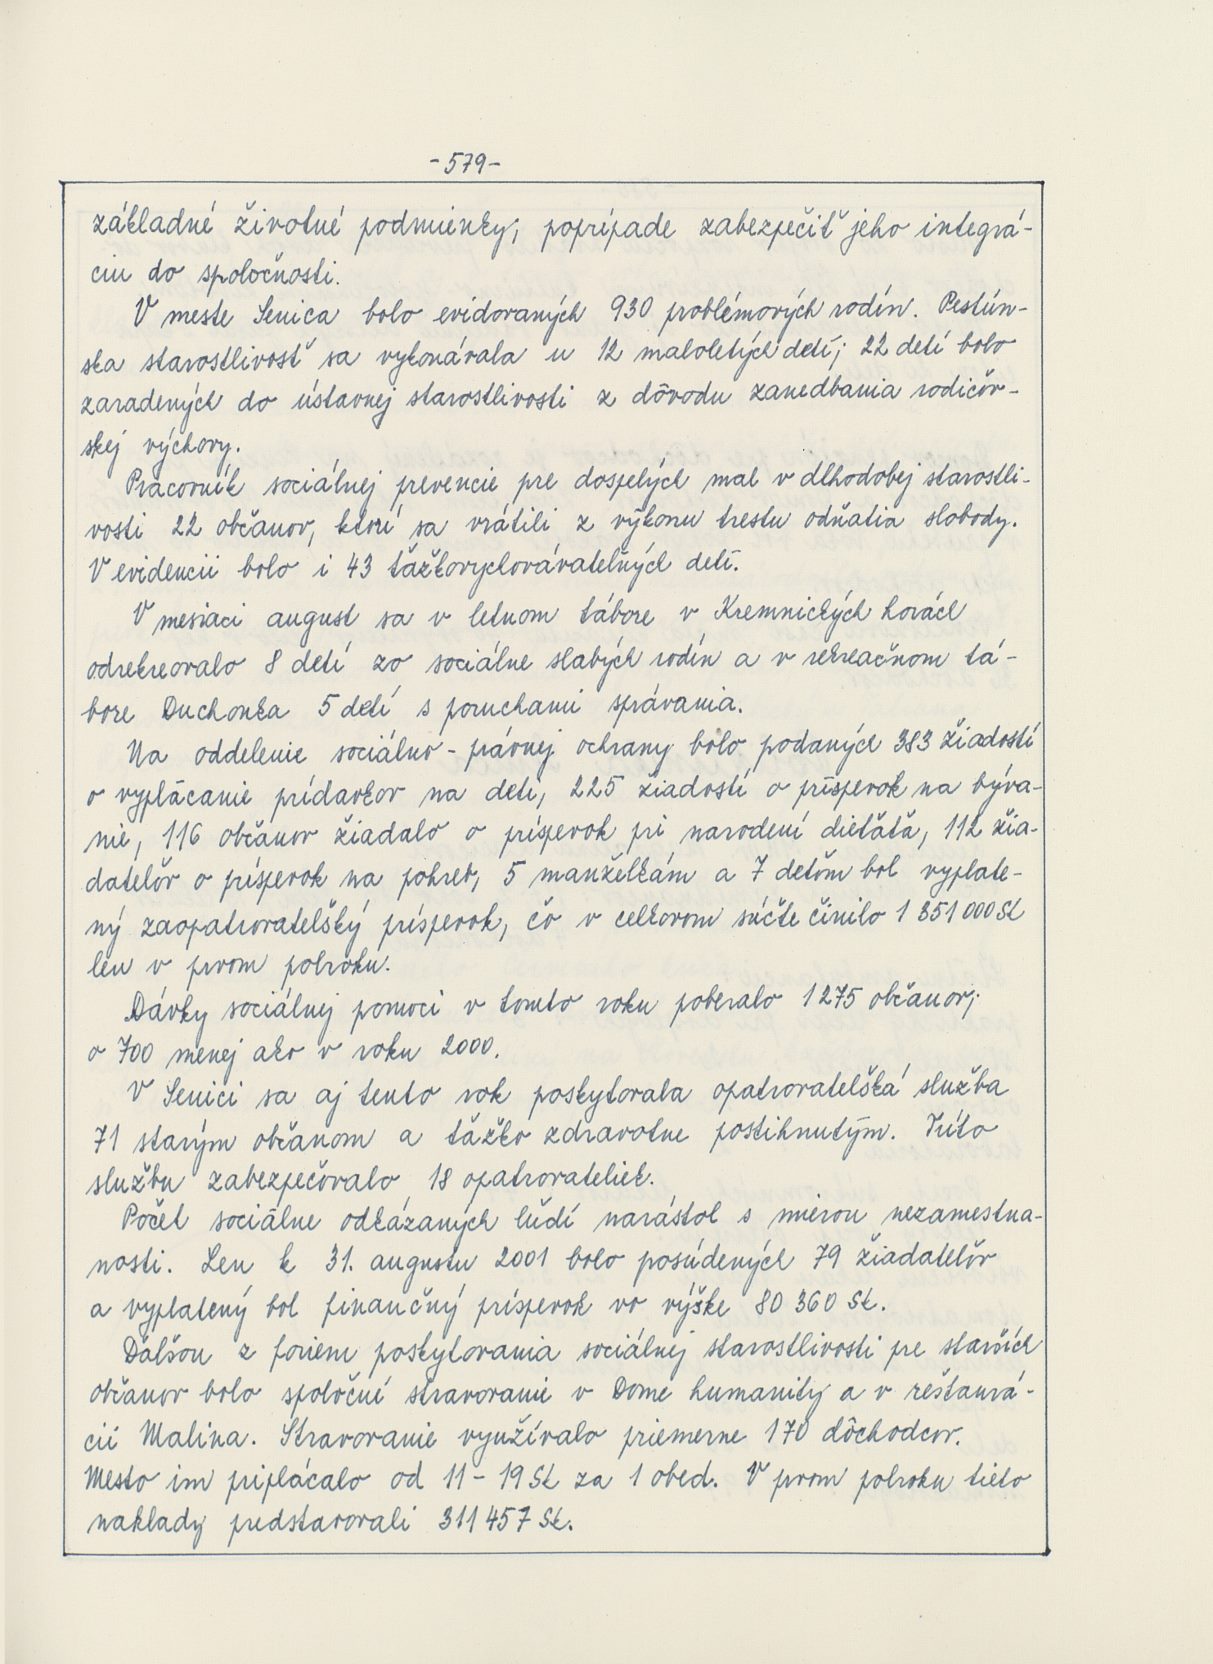 -579-
základné životné podmienky, poprípade zabezpečiť jeho integrá-
ciu do spoločnosti.
V meste Senica bolo evidovaných 930 problémových rodín. Pestún-
ska starostlivosť sa vykonávala u 12 maloletých detí; 22 detí bolo
zaradených do ústavnej starostlivosti z dôvodu zanedbania rodičov-
skej výchovy.
Pracovník sociálnej prevencie pre dospelých mal v dlhodobej starostli-
vosti 22 občanov, ktorí sa vrátili z výkonu trestu odňatia slobody.
V evidencii bolo i 43 ťažkovychovávateľných detí.
V mesiaci august sa v letnom tábore v Kremnických horách
odrekreovalo 8 detí zo sociálne slabých rodín a v rekreačnom tá-
bore Duchonka 5 detí s poruchami správania.
Na oddelenie sociálno-právnej ochrany bolo podaných 383 žiadostí
o vyplácanie prídavkov na deti, 225 žiadostí o príspevok na býva-
nie, 116 občanov žiadalo o príspevok pri narodení dieťaťa, 112 žia-
dateľov o príspevok na pohreb, 5 manželkám a 7 deťom bol vyplate-
ný zaopatrovateľský príspevok, čo v celkovom súčte činilo 1 351 000 Sk
len v prvom polroku.
Dávky sociálnej pomoci v tomto roku poberalo 1 275 občanov;
o 700 menej ako v roku 2000.
V Senici sa aj tento rok poskytovala opatrovateľská služba
71 starým občanom a ťažko zdravotne postihnutým. Túto
službu zabezpečovalo 18 opatrovateliek.
Počet sociálne odkázaných ľudí narástol s mierou nezamestna-
nosti. Len k 31. augustu 2001 bolo posúdených 79 žiadateľov
a vyplatený bol finančný príspevok vo výške 80 360 Sk.
Ďalšou z foriem poskytovania sociálnej starostlivosti pre starších
občanov bolo spoločné stravovanie v Dome humanity a v reštaurá-
cii Malina. Stravovanie využívalo priemerne 170 dôchodcov.
Mesto im priplácalo od 11-19 Sk za 1 obed. V prvom polroku tieto
naklady predstavovali 311 457 Sk.